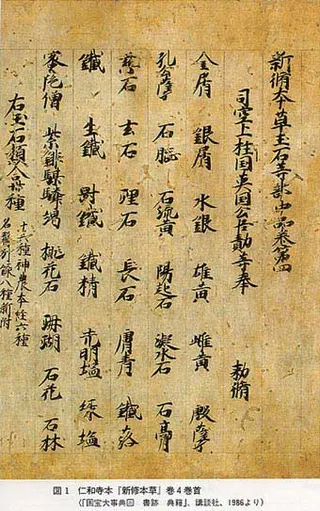 新脩本草玉石等部中品卷第四
司空上柱国英国公臣勣等奉 勅脩
金屑 銀屑 水銀 雄黄 雌黄 殷孽
孔公孽 石脳 石流黄 陽起石 凝水石 石膏
慈石 玄石 理石 長石 膚青 鐵落
鐵 生鐵 鐵 鐵精 光明塩 緑塩
蜜陀僧 紫騏驎竭 桃花石 珊瑚 石花 石林
右玉石類合卅種
十六種神農本經六種
名醫別録八種新附
図1 仁和寺本『新修本草』巻4巻首
(『国宝大事典 書跡 典籍』, 講談社, 1986より)